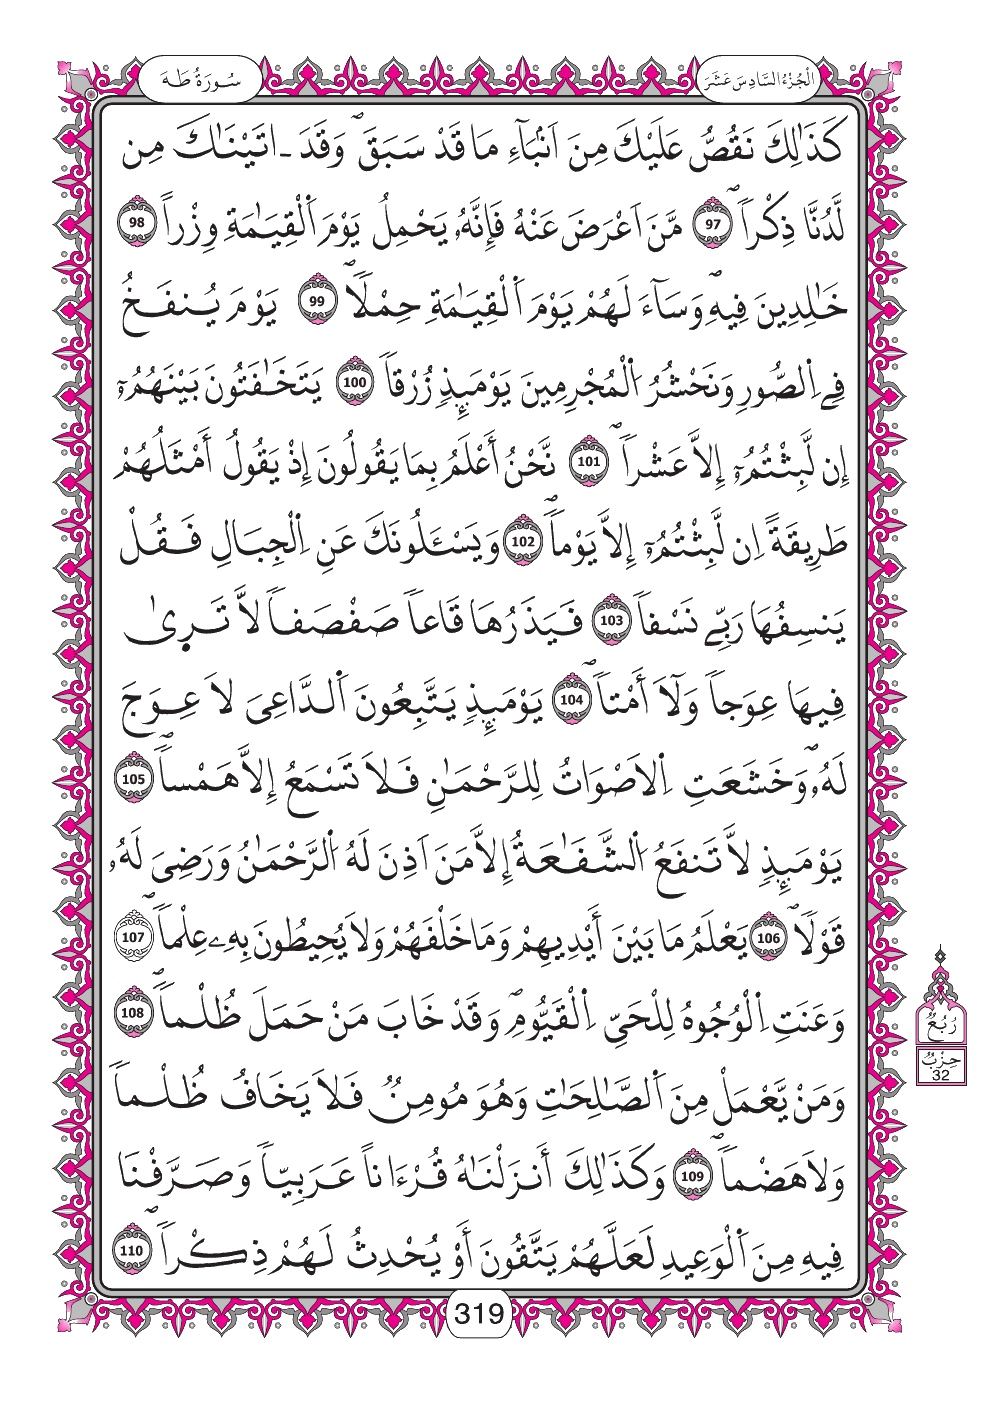 سُورَةُ طَهَ
اَلْجُزْءُ السَّادِسَ عَشَرَ
كَذَٰلِكَ نَقُصُّ عَلَيْكَ مِنَ اَنۢبَآءِ مَا قَدْ سَبَقَۖ وَقَدَ ـ اتَيْنَٰكَ مِن
لَّدُنَّا ذِكْراٗۖ 97 مَّنَ اَعْرَضَ عَنْهُ فَإِنَّهُۥ يَحْمِلُ يَوْمَ اَ۬لْقِيَٰمَةِ وِزْراً 98
خَٰلِدِينَ فِيهِۖ وَسَآءَ لَهُمْ يَوْمَ اَ۬لْقِيَٰمَةِ حِمْلاٗۖ 99 يَوْمَ يُنفَخُ
فِے اِ۬لصُّورِ وَنَحْشُرُ اُ۬لْمُجْرِمِينَ يَوْمَئِذٖ زُرْقاٗ 100 يَتَخَٰفَتُونَ بَيْنَهُمُۥٓ
إِن لَّبِثْتُمُۥٓ إِلَّا عَشْراٗۖ 101 نَّحْنُ أَعْلَمُ بِمَا يَقُولُونَ إِذْ يَقُولُ أَمْثَلُهُمْ
طَرِيقَةً اِن لَّبِثْتُمُۥٓ إِلَّا يَوْماٗۖ 102 وَيَسْـَٔلُونَكَ عَنِ اِ۬لْجِبَالِ فَقُلْ
يَنسِفُهَا رَبِّے نَسْفاٗ 103 فَيَذَرُهَا قَاعاٗ صَفْصَفاٗ لَّا تَر۪ىٰ
فِيهَا عِوَجاٗ وَلَآ أَمْتاٗۖ 104 يَوْمَئِذٖ يَتَّبِعُونَ اَ۬لدَّاعِىَ لَا عِوَجَ
لَهُۥۖ وَخَشَعَتِ اِ۬لَاصْوَاتُ لِلرَّحْمَٰنِ فَلَا تَسْمَعُ إِلَّا هَمْساٗۖ 105
يَوْمَئِذٖ لَّا تَنفَعُ اُ۬لشَّفَٰعَةُ إِلَّا مَنَ اَذِنَ لَهُ اُ۬لرَّحْمَٰنُ وَرَضِىَ لَهُۥ
قَوْلاٗۖ 106 يَعْلَمُ مَا بَيْنَ أَيْدِيهِمْ وَمَا خَلْفَهُمْ وَلَا يُحِيطُونَ بِهِۦ عِلْماٗۖ 107
وَعَنَتِ اِ۬لْوُجُوهُ لِلْحَىِّ اِ۬لْقَيُّومِۖ وَقَدْ خَابَ مَنْ حَمَلَ ظُلْماٗۖ 108
وَمَنْ يَّعْمَلْ مِنَ اَ۬لصَّٰلِحَٰتِ وَهُوَ مُومِنٞ فَلَا يَخَافُ ظُلْماٗ
وَلَا هَضْماٗۖ 109 وَكَذَٰلِكَ أَنزَلْنَٰهُ قُرْءَاناً عَرَبِيّاٗ وَصَرَّفْنَا
فِيهِ مِنَ اَ۬لْوَعِيدِ لَعَلَّهُمْ يَتَّقُونَ أَوْ يُحْدِثُ لَهُمْ ذِكْراٗۖ 110
رُبُعُ
حِزْبُ
32
319